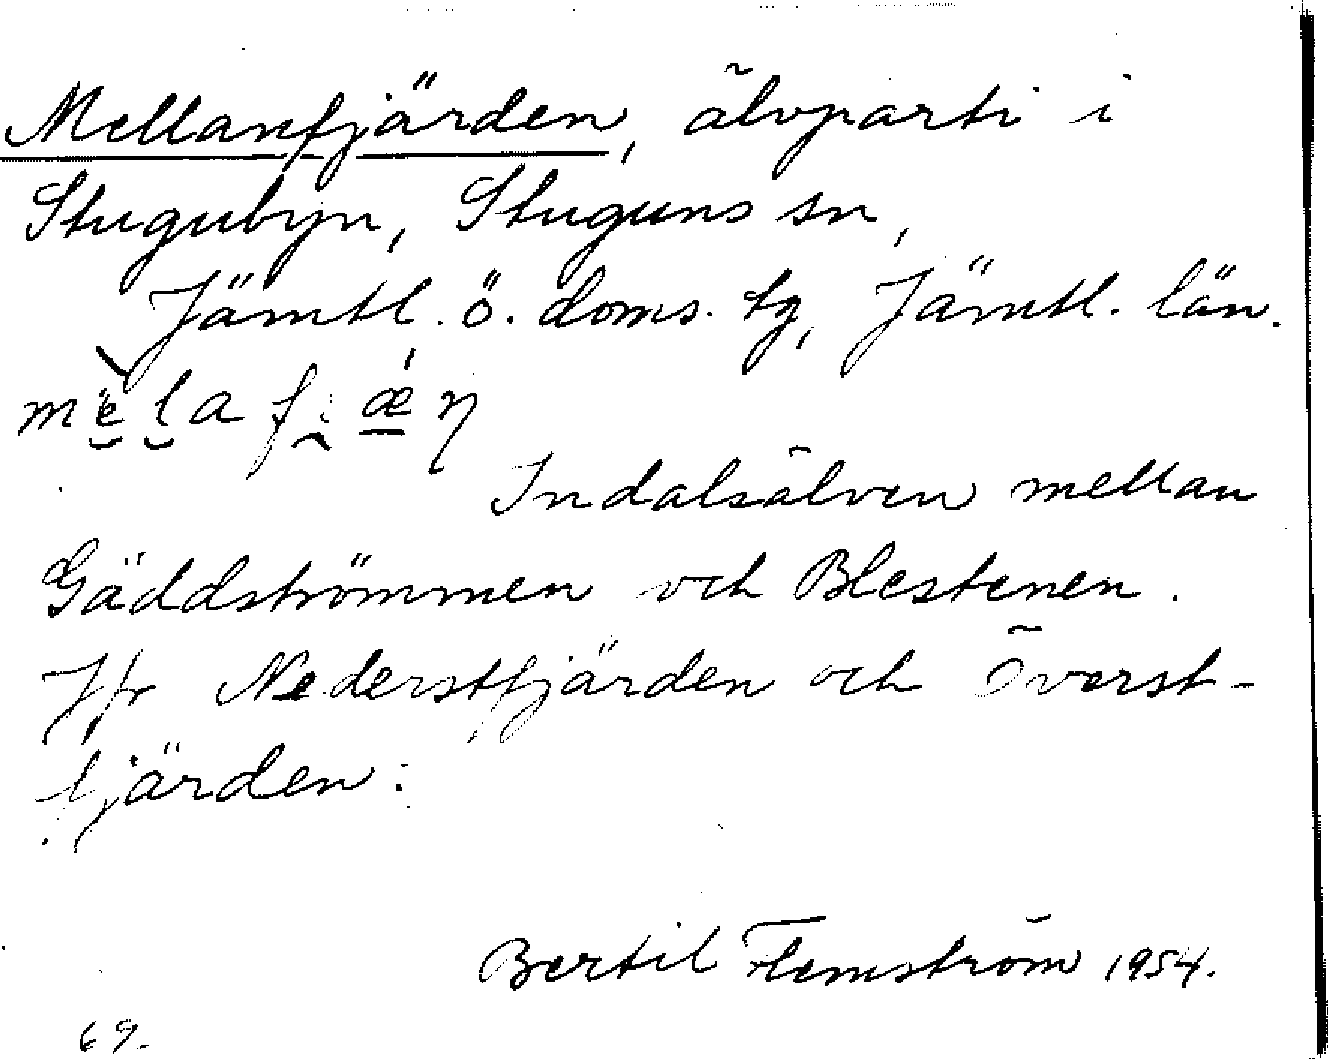 Mellanfjärden, älvparti i
Stugubyn, Stuguns sn,
Jämtl. ö. doms. tg, Jämtl. län.
Indalsälven mellan
Gäddströmmen och Blestenen.
Jfr Nederstfjärden och Överst-
fjärden.
Bertil Flemström 1954.
69.